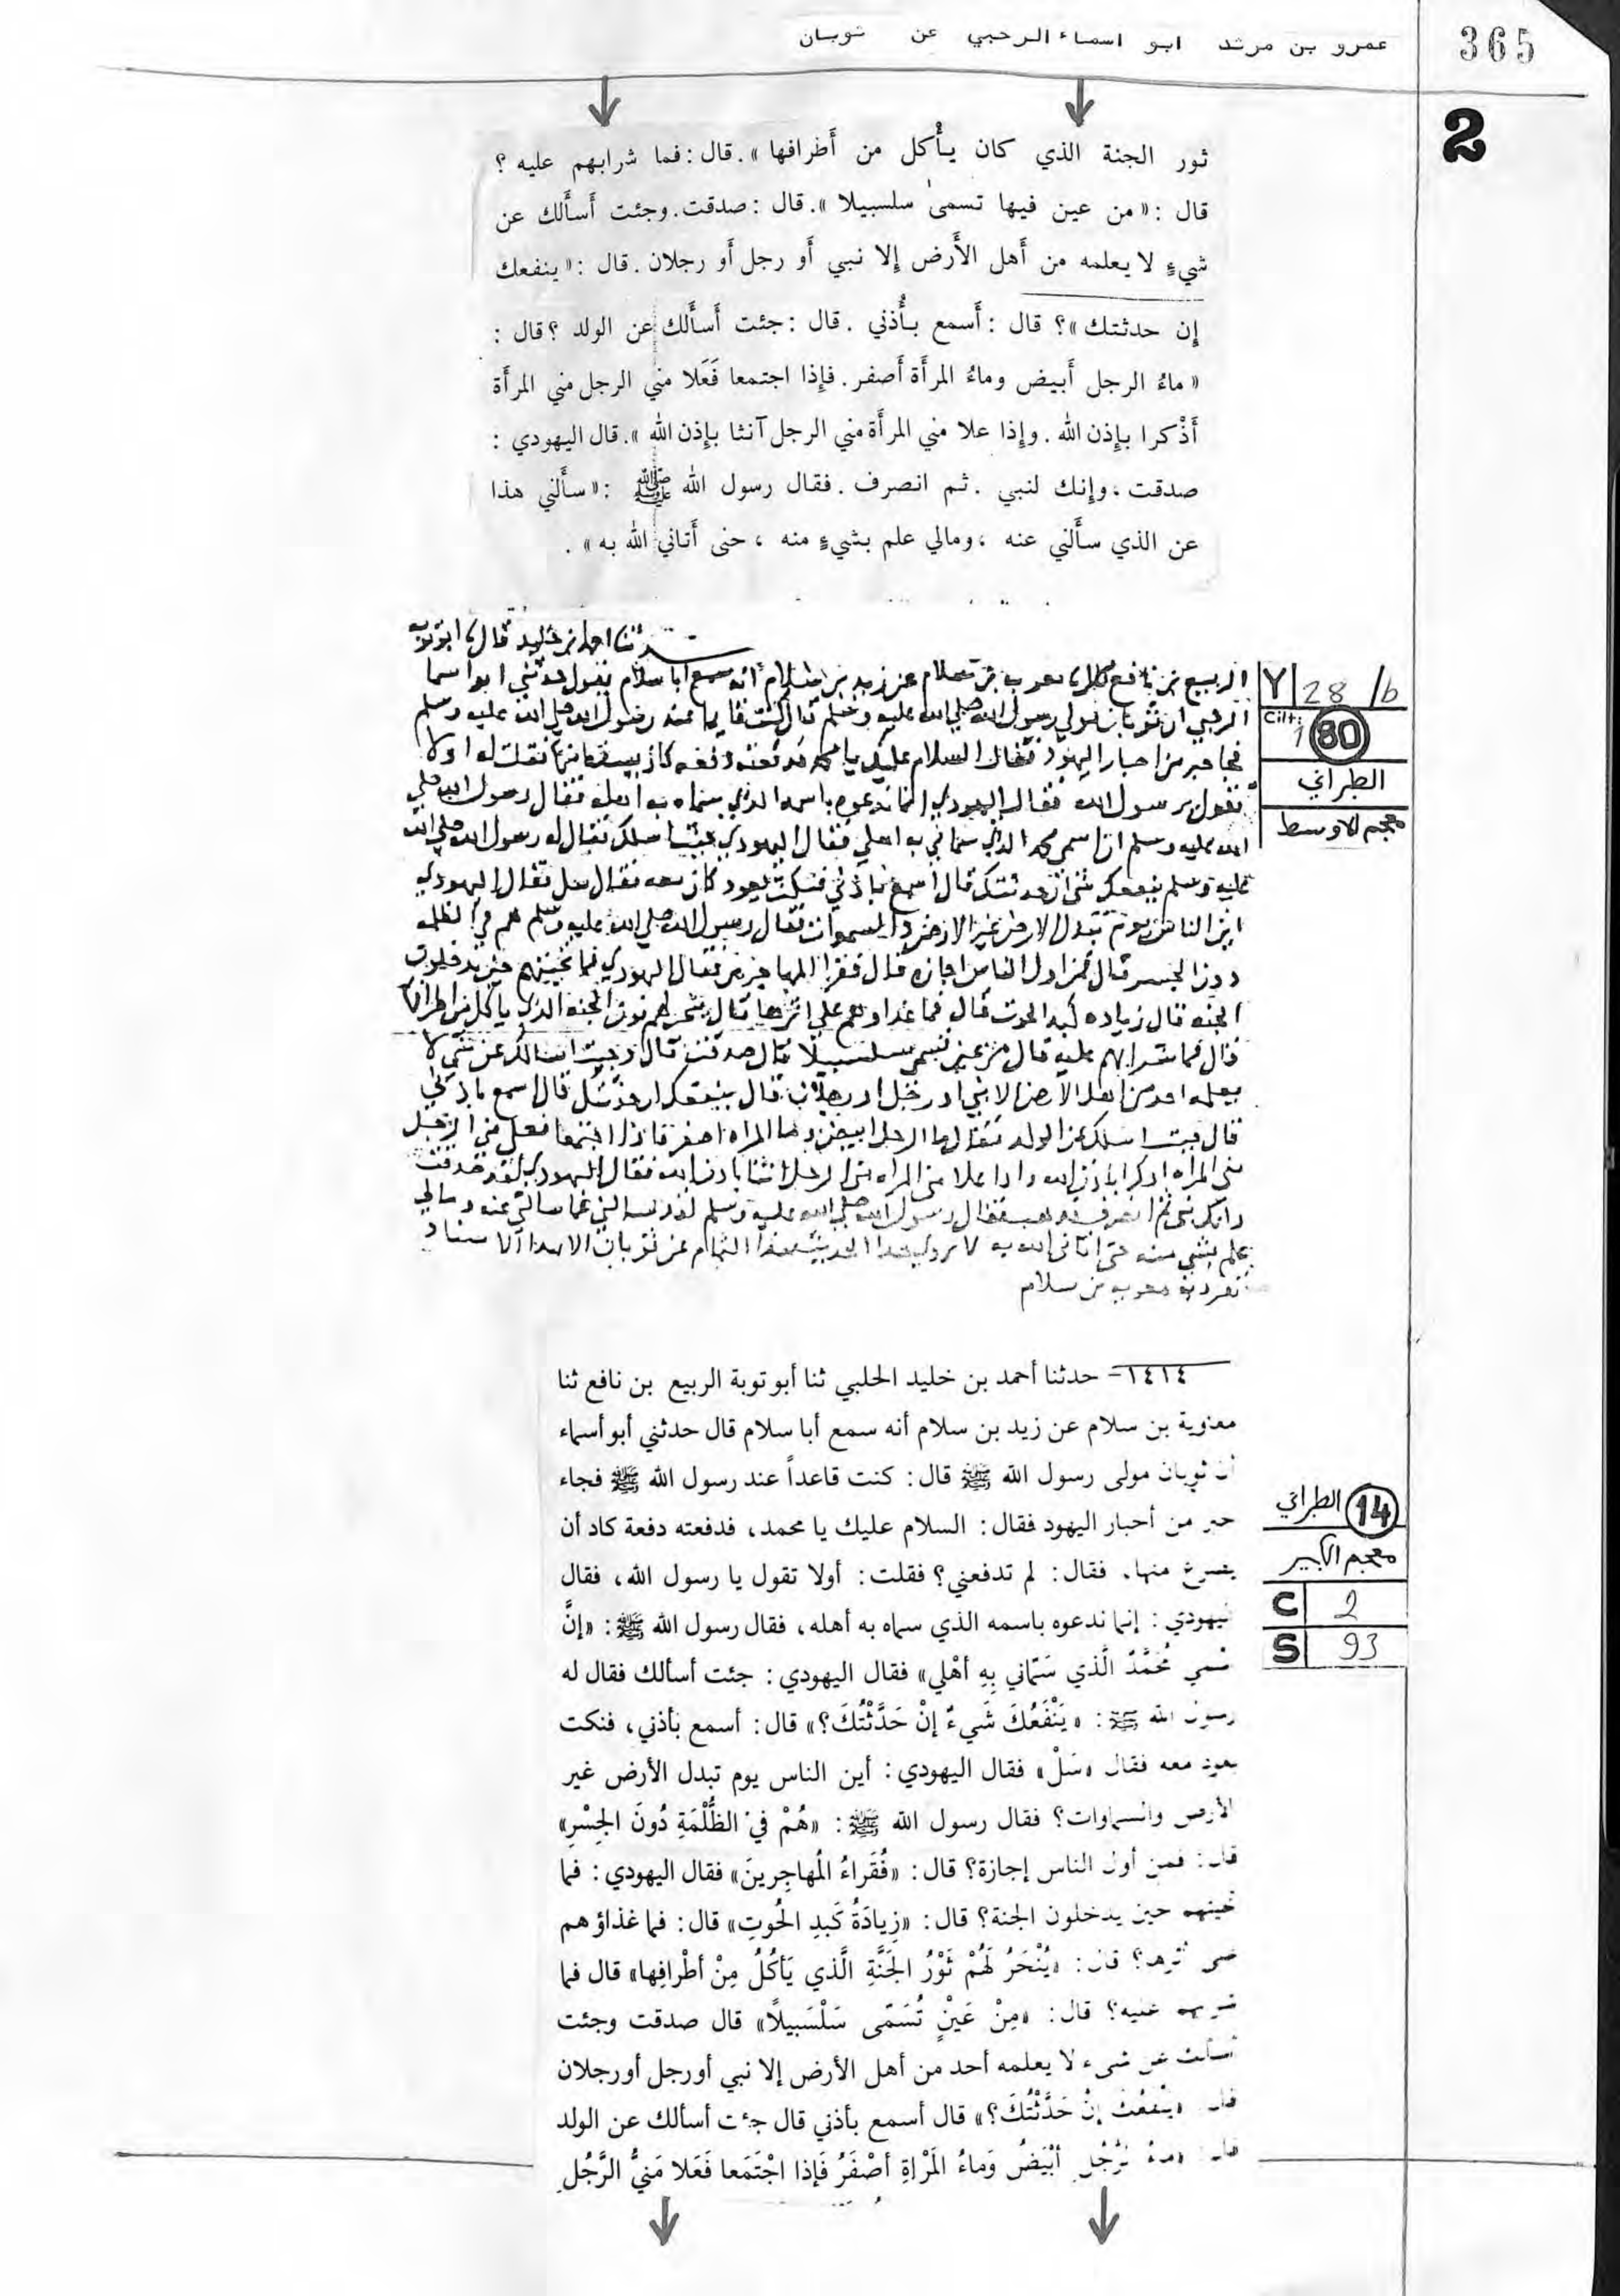 365
عمرو بن مرثد ابو اسماء الرحبي عن ثوبان
2
ثور الجنة الذي كان يأكل من أطرافها». قال: فما شرابهم عليه ؟
قال : «من عين فيها تسمى سلسبيلا». قال : صدقت. وجئت أسألك عن
شيءٍ لا يعلمه من أهل الأرض إلا نبي أو رجل أو رجلان. قال : «ينفعك
إن حدثتك»؟ قال : أسمع بأذني . قال : جئت أسألك عن الولد ؟ قال :
«ماءُ الرجل أبيض وماءُ المرأة أصفر. فإذا اجتمعا فَعَلا مني الرجل مني المرأة
أذْكرا بإذن الله . وإذا علا مني المرأة مني الرجل آنثا بإذن الله ». قال اليهودي :
صدقت ، وإنك لنبي . ثم انصرف . فقال رسول الله ﷺ : «سألني هذا
عن الذي سألني عنه ، ومالي علم بشيءٍ منه ، حتى أتاني الله به» .
حدثنا احمد بن خليد قال ابو توبه
الربيع بن نافع معويه بن سلام عن زيد بن سلام انه سمع ابا سلام يقول حدثني ابو اسما
الرحبي ان ثوبان مولي رسول الله صلي الله عليه وسلم قال كنت قايما عند رسول الله صلي الله عليه وسلم
فجا حبر من احبار اليهود فقال السلام عليك يا محمد فدفعته دفعه كاد يصرع منها فقلت له اولا
تقول يرسول الله فقال اليهودي انما ندعوه باسمه الذي سماه به اهله فقال رسول الله صلي
الله عليه وسلم ان اسمي محمد الذي سماني به اهلي فقال اليهودي جيت اسلك فقال له رسول الله صلي الله
عليه وسلم ينفعك شي ان حدثتك قال أسمع باذني فنكت بعود كان معه فقال سل فقال اليهودي
اين الناس يوم تبدل الارض غير الارض والسموات فقال رسول الله صلي الله عليه وسلم هم في الظلمه
دون الجسر قال فمن اول الناس اجازه قال فقرا المهاجرين فقال اليهودي فما تحيتهم حين يدخلون
الجنه قال زياده كبد الحوت قال فما غداوهم علي اثرها قال ينحر لهم ثور الجنه الذي ياكل من اطرافها
قال فما شرابهم عليه قال من عين تسمى سلسبيلا قال صدقت قال وجيت اسالك عن شي لا
يعلمه احد من اهل الارض الا نبي او رجل او رجلان قال ينفعك ان حدثتك قال اسمع باذني
قال جيت اسلك عن الولد فقال ما الرجل ابيض وما المراه اصفر فاذا اجتمعا فعلا مني الرجل
مني المراه اذكرا باذن الله واذا علا مني المراه مني الرجل انثا باذن الله فقال اليهودي لقد صدقت
وانك نبي ثم انصرف فذهب فقال رسول الله صلي الله عليه وسلم لقد سالني عما سالني عنه ومالي
علم بشي منه حتى اتاني الله به لا يروي هذا الحديث بهذا التمام عن ثوبان الا بهذا الاسناد
تفرد به معويه بن سلام
Y 28/b
Cilt: 1 80
الطبراني
معجم الاوسط
١٤١٤ - حدثنا أحمد بن خليد الحلبي ثنا أبو توبة الربيع بن نافع ثنا
معاوية بن سلام عن زيد بن سلام أنه سمع أبا سلام قال حدثني أبو أسماء
أن ثوبان مولى رسول الله ﷺ قال: كنت قاعداً عند رسول الله ﷺ فجاء
حبر من أحبار اليهود فقال: السلام عليك يا محمد، فدفعته دفعة كاد أن
يصرع منها. فقال: لم تدفعني؟ فقلت: أولا تقول يا رسول الله، فقال
اليهودي: إنما ندعوه باسمه الذي سماه به أهله، فقال رسول الله ﷺ: «إنَّ
اسمي مُحَمَّدٌ الَّذي سَمّاني بِهِ أهْلي» فقال اليهودي: جئت أسألك فقال له
رسول الله ﷺ: «يَنْفَعُكَ شَيءٌ إنْ حَدَّثْتُكَ؟» قال: أسمع بأذني، فنكت
بعود معه فقال «سَلْ» فقال اليهودي: أين الناس يوم تبدل الأرض غير
الأرض والسماوات؟ فقال رسول الله ﷺ: «هُمْ فيْ الظُّلْمَةِ دُونَ الجِسْرِ»
قال: فمن أول الناس إجازة؟ قال: «فُقَراءُ المُهاجِرينَ» فقال اليهودي: فما
تحيتهم حين يدخلون الجنة؟ قال: «زِيادَةُ كَبدِ الحُوتِ» قال: فما غذاؤهم
على أثرها؟ قال: «يُنْحَرُ لَهُمْ ثَوْرُ الجَنَّةِ الَّذي يَأكُلُ مِنْ أطْرافِها» قال فما
شرابهم عليه؟ قال: «مِنْ عَيْنٍ تُسَمّى سَلْسَبيلاً» قال صدقت وجئت
أسألك عن شيء لا يعلمه أحد من أهل الأرض إلا نبي أو رجل أو رجلان
قال «ينفعك إنْ حَدَّثْتُكَ؟» قال أسمع بأذني قال جئت أسألك عن الولد
قال «ماءُ الرَّجُلِ أبْيَضُ وَماءُ المَرْاةِ أصْفَرُ فَإذا اجْتَمَعا فَعَلا مَنيُّ الرَّجُلِ
14 الطبراني
معجم الكبير
C 2
S 93